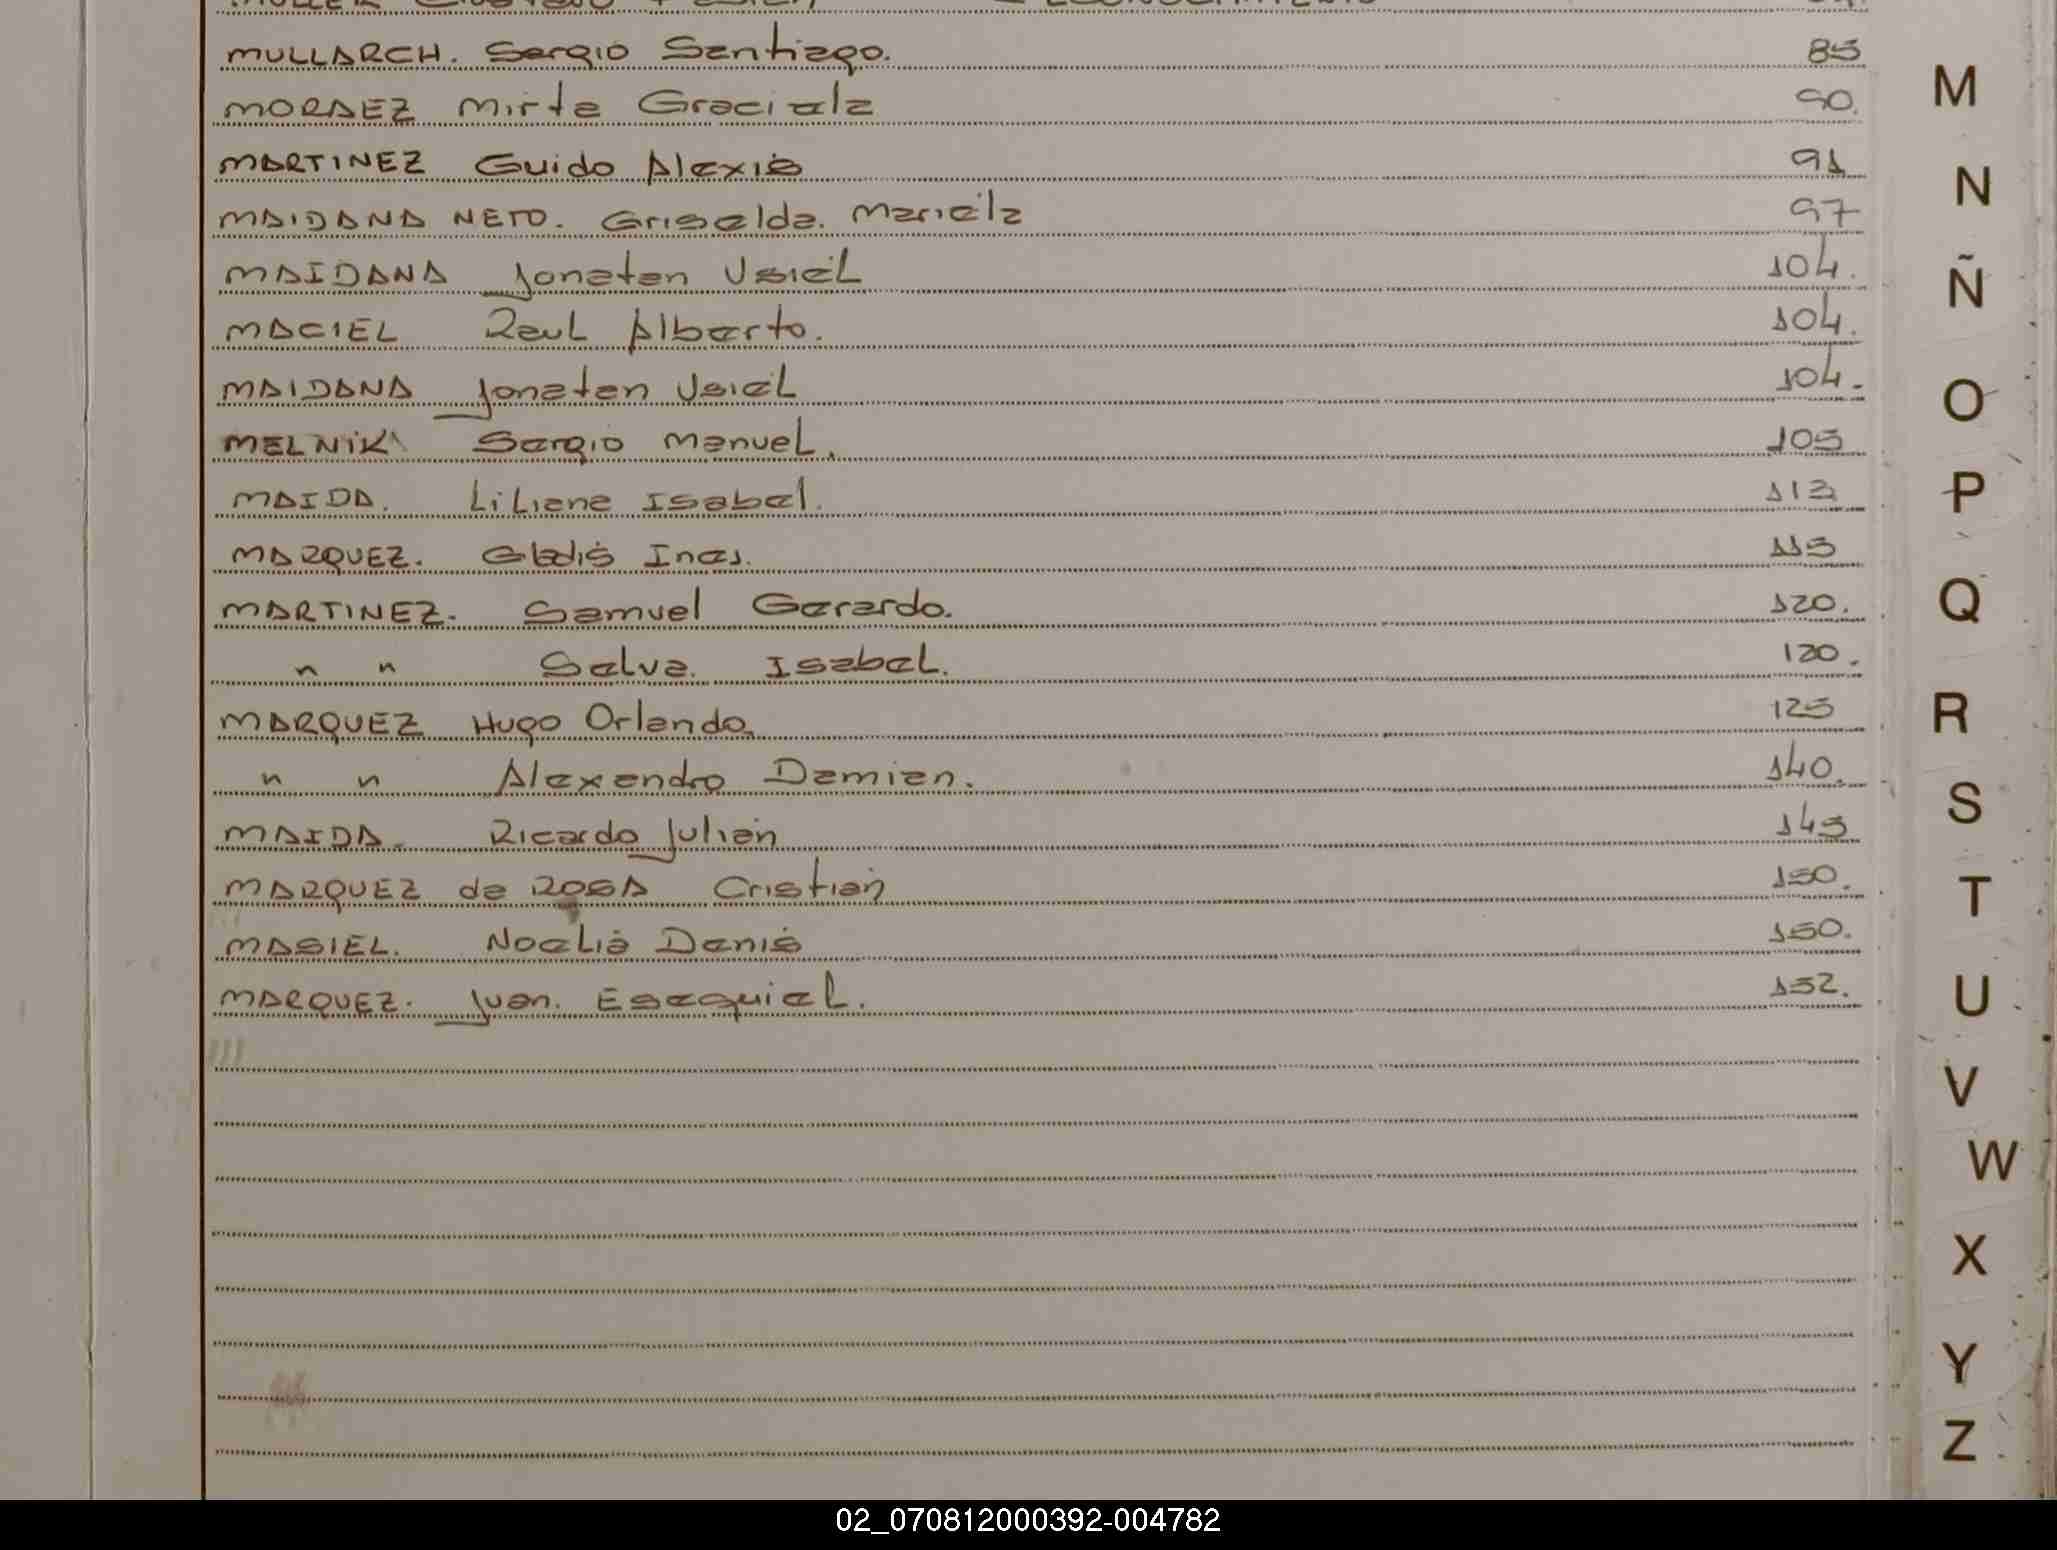 MULLARCH. Sergio Santiago. 85
MORAEZ Mirta Graciela 90.
MARTINEZ Guido Alexis 91
MAIDANA NETO. Griselda. Mariela 97
MAIDANA Jonatan Usiel 104.
MACIEL Raul Alberto. 104.
MAIDANA Jonatan Usiel 104.
MELNIK Sergio Manuel. 105
MAIDA. Liliana Isabel. 113
MARQUEZ. Gladis Ines. 115
MARTINEZ. Samuel Gerardo. 120.
" " Selva. Isabel. 120.
MARQUEZ Hugo Orlando. 125
" " Alexandro Damian. 140.
MAIDA. Ricardo Julian 145
MARQUEZ de ROSA Cristian 150.
MASIEL. Noelia Denis 150.
MARQUEZ. Juan. Esequiel. 152.
M
N
Ñ
O
P
Q
R
S
T
U
V
W
X
Y
Z
02_070812000392-004782